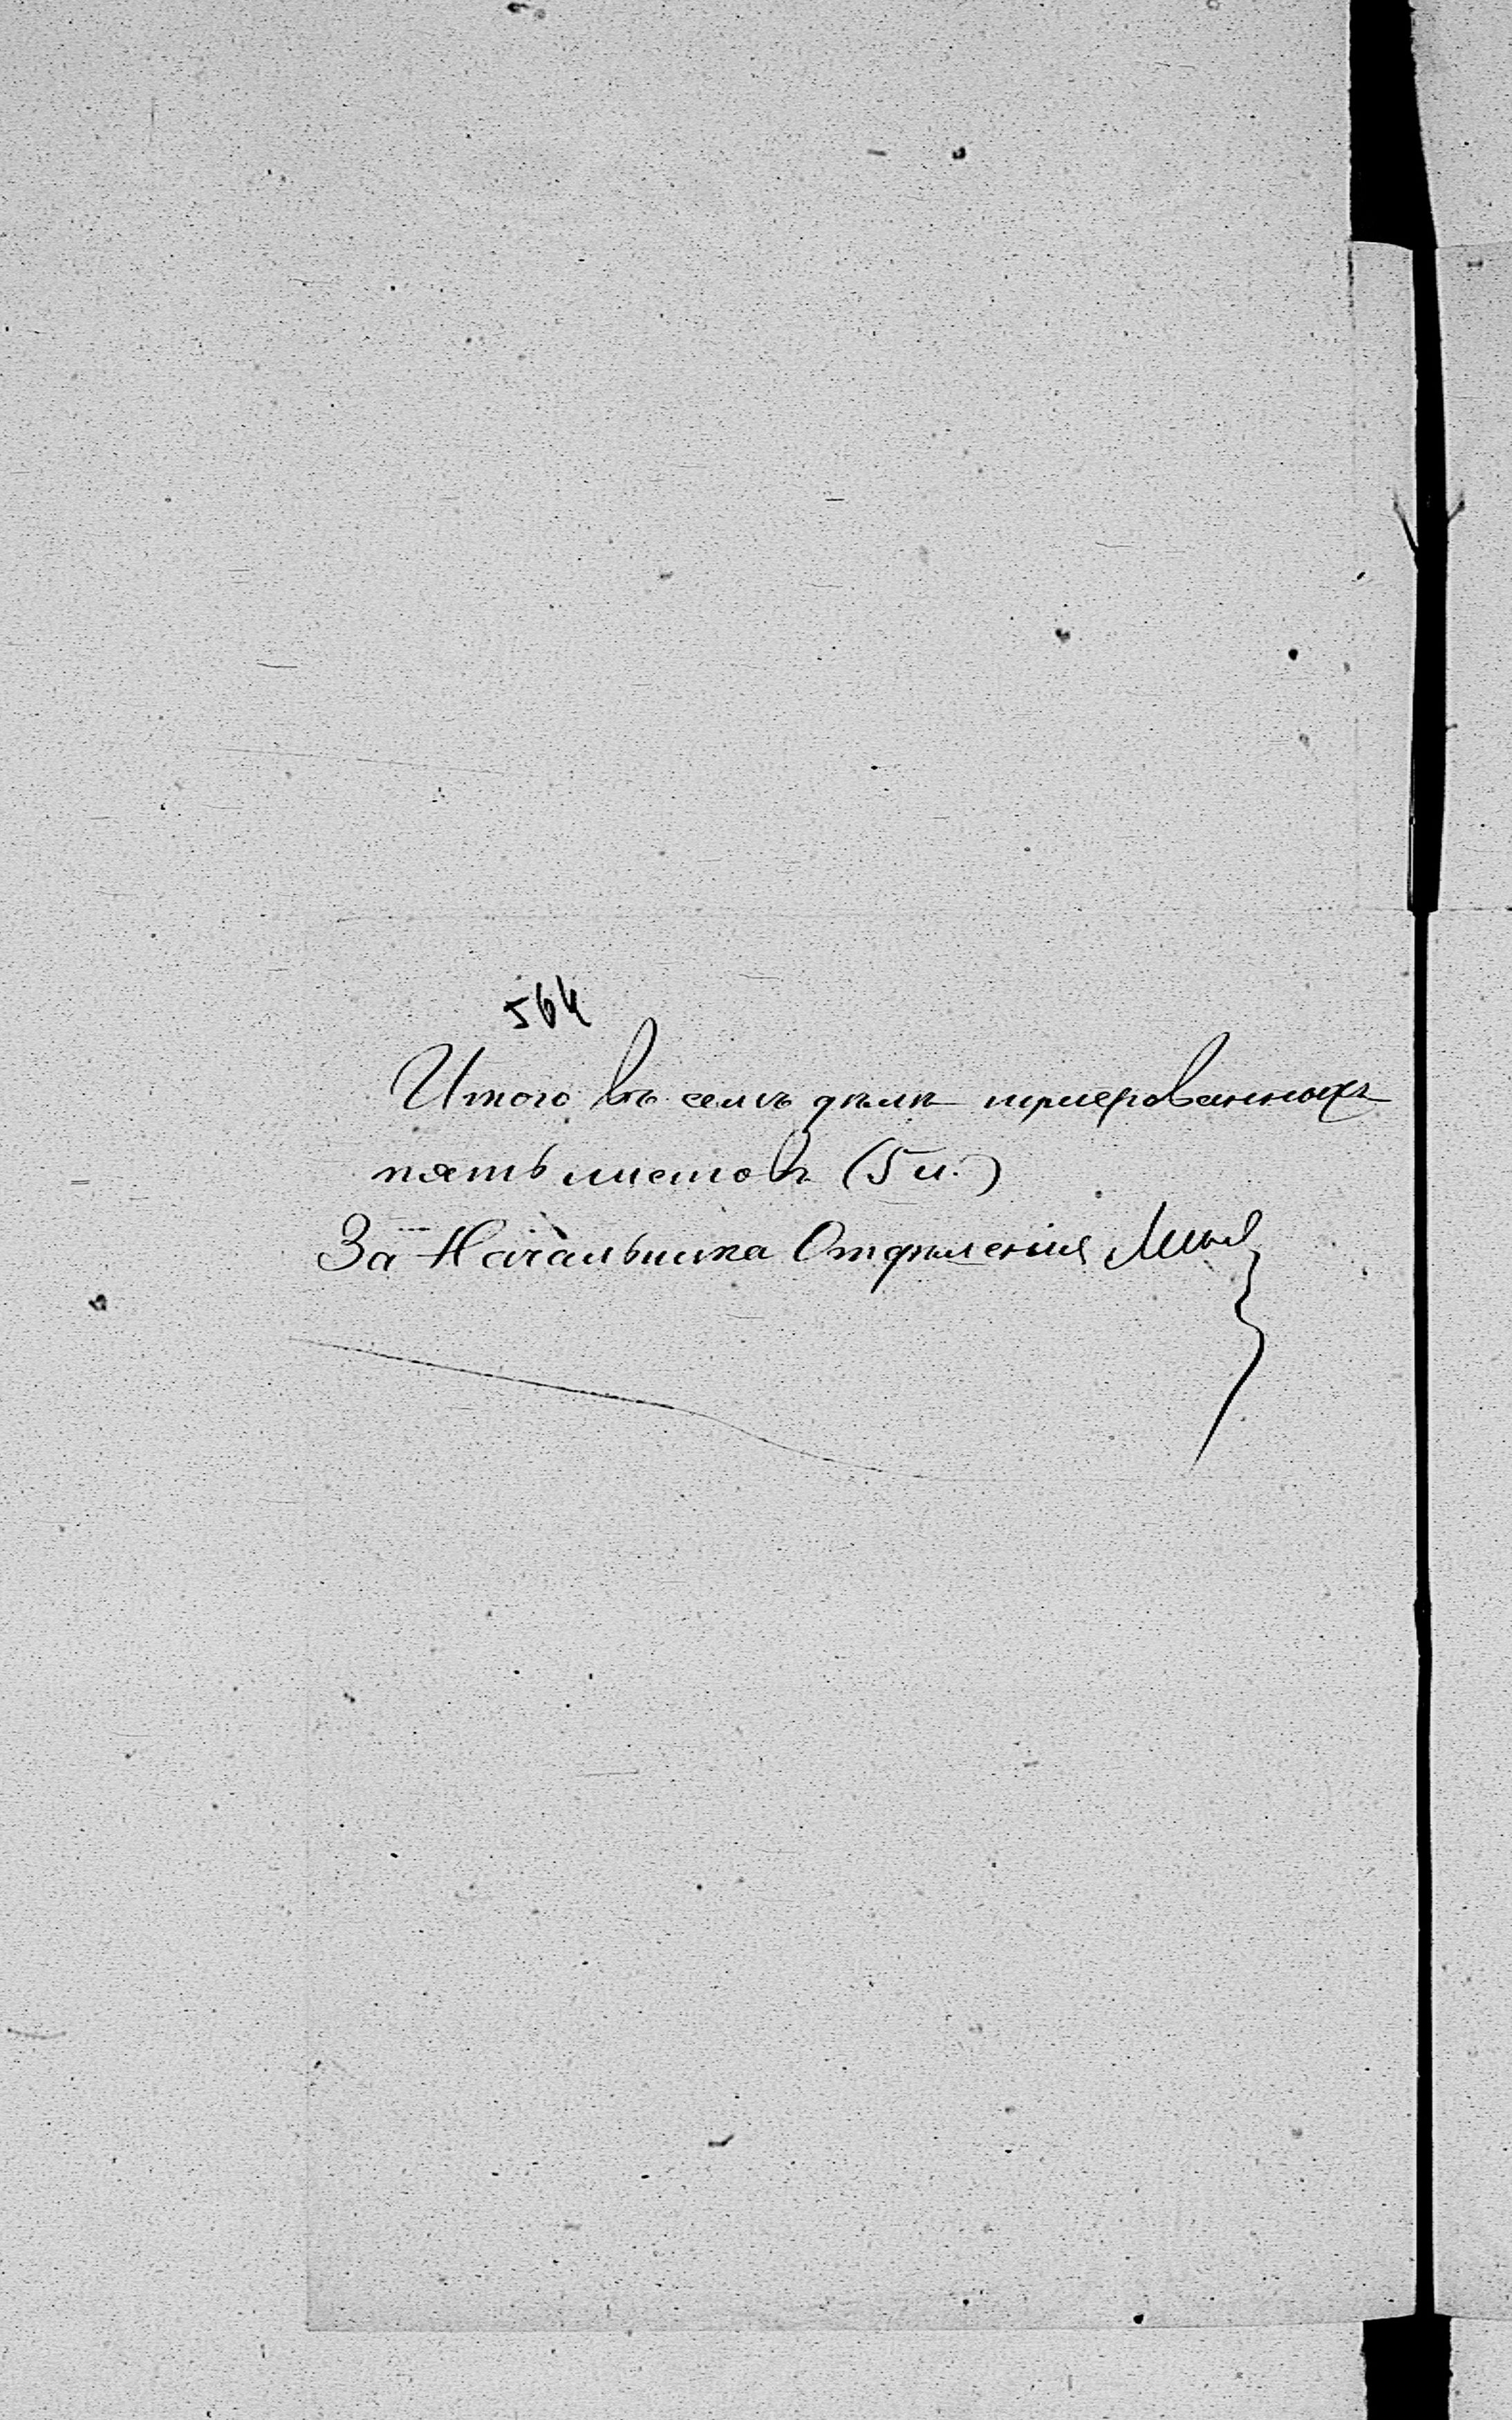 564
Итого въ семъ дѣлѣ нумерованныхъ
пять листовъ (5 л.)
За Начальника Отдѣленія